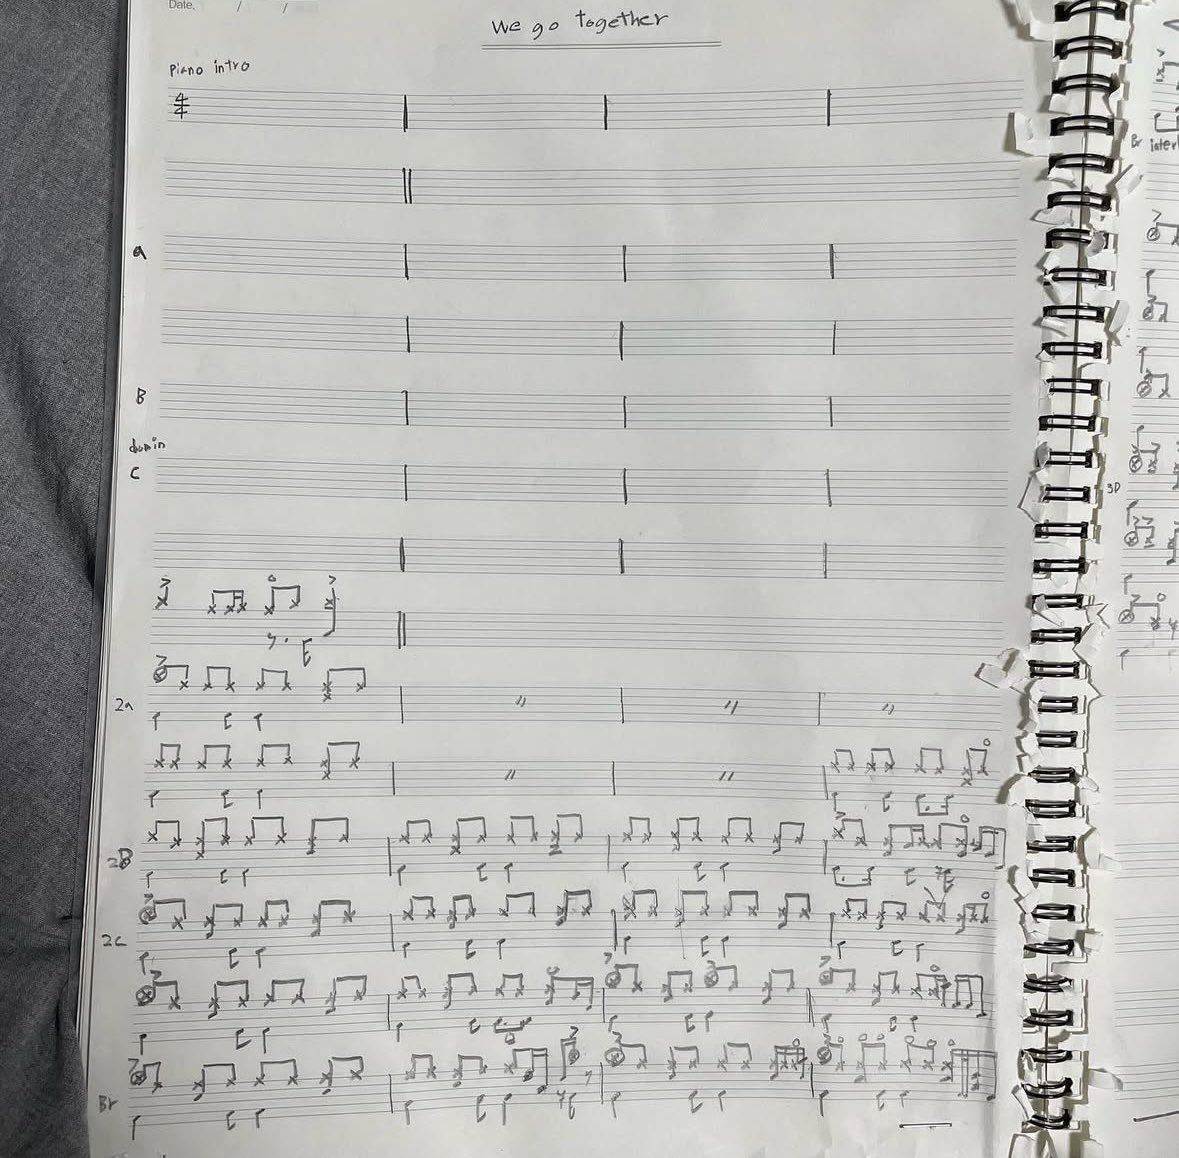 Date. / /
we go together
Piano intro
4
4
a
B
drum in
C
2a
2B
2C
Br
Br inter
3D